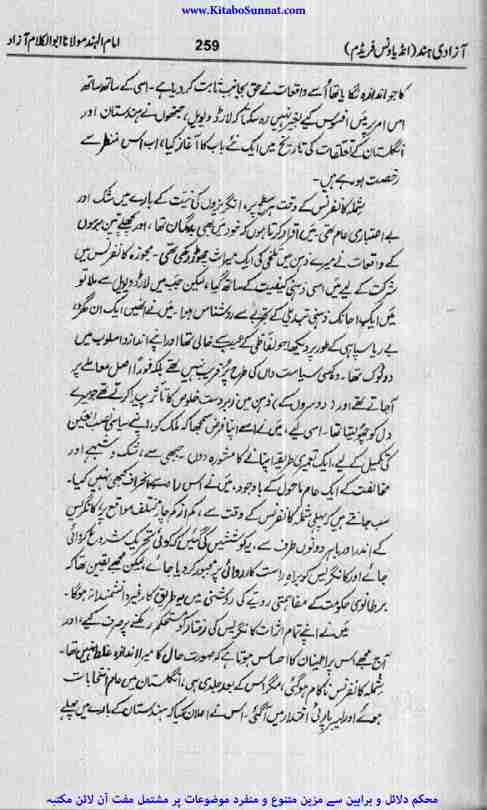 www.KitaboSunnat.com
آزادی ہند (انڈیا ونس فریڈم)
259
امام الہند مولانا ابوالکلام آزاد
کا جو اندازہ لگایا تھا اُسے واقعات نے حق بجانب ثابت کر دیا ہے۔ اسی کے ساتھ ساتھ
اس امر پر میں افسوس کیے بغیر نہیں رہ سکتا کہ لارڈ ویول، جنھوں نے ہندستان اور
انگلستان کے تعلقات کی تاریخ میں ایک نئے باب کا آغاز کیا، اب اس منظر سے
رخصت ہو رہے ہیں۔
شملہ کانفرنس کے وقت ہر سطح پر، انگریزوں کی نیت کے بارے میں شک اور
بے اعتباری عام تھی۔ میں اقرار کرتا ہوں کہ خود میں بھی بدگمان تھا، اور پچھلے تین برسوں
کے واقعات نے میرے ذہن میں تلخی کی ایک میراث چھوڑ رکھی تھی۔ مجوزہ کانفرنس میں
شرکت کے لیے میں اسی ذہنی کیفیت کے ساتھ گیا، لیکن جب میں لارڈ ویول سے ملا تو
میں ایک اچانک ذہنی تبدیلی کے تجربے سے روشناس ہوا۔ میں نے انھیں ایک ان گھڑ،
بے ریا سپاہی کے طور پر دیکھا جو لفاظی کے عیب سے خالی تھا اور اپنے انداز و اسلوب میں
دو ٹوک تھا۔ وہ کسی سیاست داں کی طرح پُر فریب نہیں تھے بلکہ فوراً اصل معاملے پر
آ جاتے تھے اور (دوسروں کے) ذہن میں زبردست خلوص کا تاثر پیدا کرتے تھے جو میرے
دل کو چھو لیتا تھا۔ اسی لیے، میں نے اسے اپنا فرض سمجھا کہ ملک کو اپنے سیاسی نصب العین
کی تکمیل کے لیے، ایک تعمیری طریقہ اپنانے کا مشورہ دوں۔ جبھی سے، شک و شبہے اور
مخالفت کے ایک عام ماحول کے باوجود، میں نے اس راہ سے انحراف کبھی نہیں کیا۔
سب جانتے ہیں کہ پہلی شملہ کانفرنس کے وقت سے، کم از کم چار مختلف مواقع پر، کانگریس
کے اندر اور باہر دونوں طرف سے، یہ کوششیں کی گئیں کہ کوئی تحریک شروع کروائی
جائے اور کانگریس کو براہِ راست کارروائی پر مجبور کر دیا جائے لیکن مجھے یقین تھا کہ
برطانوی حکومت کے مفاہمتی رویے کی روشنی میں یہ طریقِ کار غیر دانشمندانہ ہوگا۔
میں نے اپنے تمام اثرات کانگریس کی رفتار کو مستحکم رکھنے پر صرف کیے، اور
آج مجھے اس پر اطمینان کا احساس ہوتا ہے کہ صورت حال کا میرا اندازہ غلط نہیں تھا۔
شملہ کانفرنس ناکام ہو گئی، مگر اس کے بعد جلدی ہی، انگلستان میں عام انتخابات
ہوئے اور لیبر پارٹی اقتدار میں آ گئی۔ اس نے اعلان کیا کہ ہندستان کے بارے میں پہلے
محکم دلائل و براہین سے مزین متنوع و منفرد موضوعات پر مشتمل مفت آن لائن مکتبہ